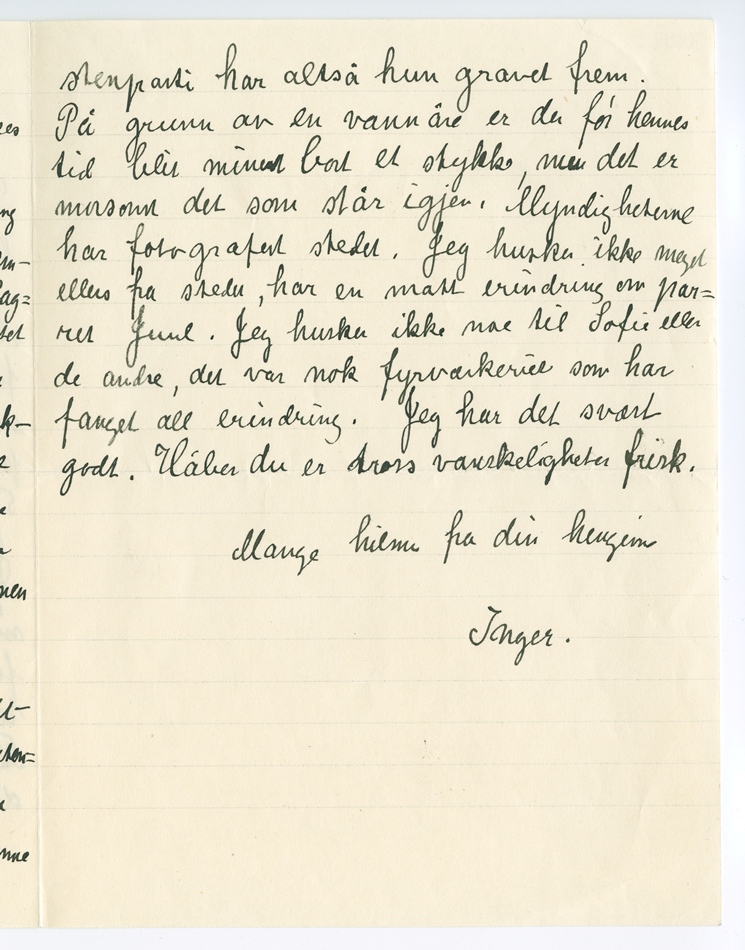 stenparti har altså hun gravet frem.
På grunn av en vannåre er der før hennes
tid blit minert bort et stykke, men det er
morsomt det som står igjen. Myndigheterne
har fotografert stedet. Jeg husker ikke meget
ellers fra stedet, har en matt erindring om par=
ret Juul. Jeg husker ikke noe til Sofie eller
de andre, det var nok fyrværkeriet som har
fanget all erindring. Jeg har det svært
godt. Håber du er tross vanskeligheter frisk.
Mange hilsner fra din hengivne
Inger.